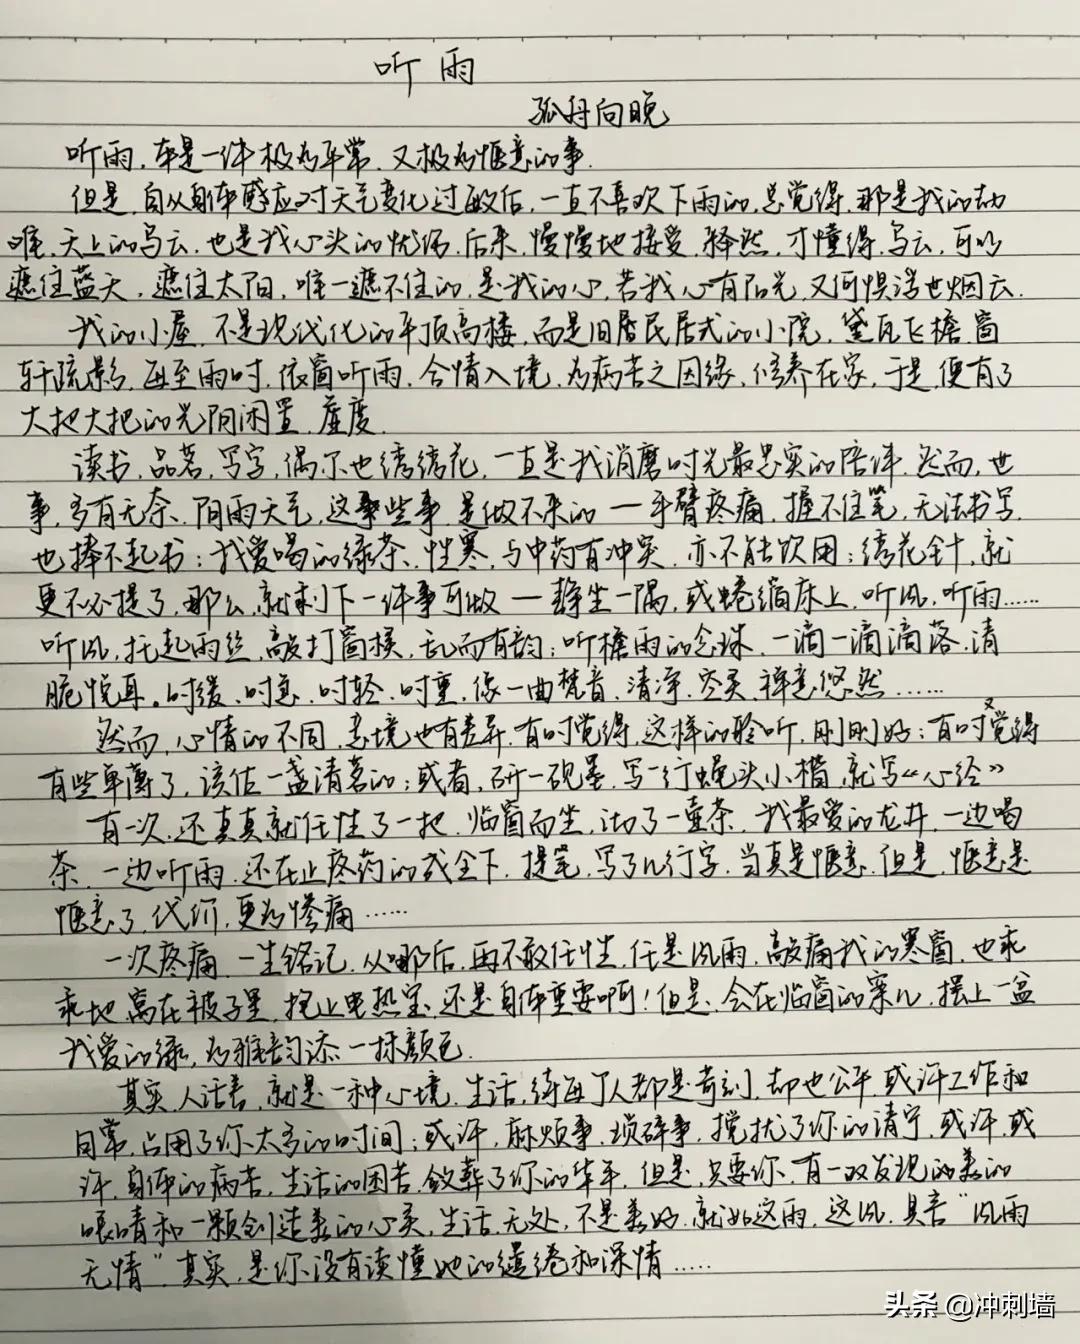 听雨
孤舟向晚
听雨,本是一件极为平常,又极为惬意的事.
但是,自从身体感应对天气变化过敏后,一直不喜欢下雨的,总觉得,那是我的劫
难,天上的乌云,也是我心头的忧伤.后来,慢慢地接受,释然,才懂得,乌云,可以
遮住蓝天,遮住太阳,唯一遮不住的,是我的心,若我心有阳光,又何惧浮世烟云.
我的小屋,不是现代化的平顶高楼,而是旧居民居式的小院,黛瓦飞檐,窗
轩疏影,每至雨时,依窗听雨,含情入境,为病苦之因缘,修养在家,于是,便有了
大把大把的光阴闲置,虚度.
读书,品茗,写字,偶尔也绣绣花,一直是我消磨时光最忠实的陪伴.然而,世
事,多有无奈.阴雨天气,这些事,是做不来的——手臂疼痛,握不住笔,无法书写,
也捧不起书;我爱喝的绿茶,性寒,与中药有冲突,亦不能饮用;绣花针,就
更不必提了,那么,就剩下一件事可做——静坐一隅,或蜷缩床上,听风,听雨……
听风,托起雨丝,敲打窗棂,乱而有韵;听檐雨的念珠,一滴一滴滴落,清
脆悦耳。时缓,时急,时轻,时重,像一曲梵音,清净,空灵,禅意悠然……
然而,心情的不同,意境也有差异,有时觉得,这样的聆听,刚刚好;有时又觉得
有些单薄了,该佐一盏清茗的;或者,研一砚墨,写一行蝇头小楷,就写《心经》
有一次,还真真就任性了一把,临窗而坐,沏了一壶茶,我最爱的龙井,一边喝
茶,一边听雨,还在止疼药的成全下,提笔,写了几行字,当真是惬意,但是,惬意是
惬意了,代价,更为惨痛……
一次疼痛,一生铭记,从哪后,再不敢任性,任是风雨,敲痛我的寒窗,也乖
乖地窝在被子里,抱上电热宝,还是身体重要啊!但是,会在临窗的案儿,摆上一盆
我爱的绿,为雅韵添一抹颜色.
其实,人活着,就是一种心境,生活,待每个人都是苛刻,却也公平,或许工作和
日常,占用了你太多的时间;或许,麻烦事,琐碎事,搅扰了你的清宁,或许,或
许,身体的病苦,生活的困苦,敛葬了你的华年,但是,只要你,有一双发现的美的
眼睛和一颗创造美的心灵,生活,无处,不是美好,就如这雨,这风,具言"风雨
无情"其实,是你没有读懂她的缱绻和深情……
头条 @冲刺墙